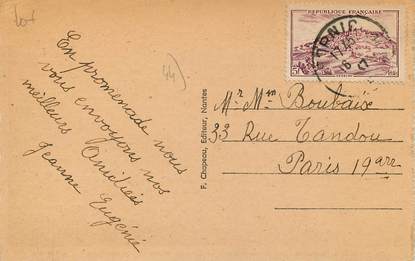 tot
44)
En promenade nous
vous envoyons nos
meilleurs Amitiées
Jeanne Eugénie
F. Chapeau, Editeur, Nantes
RÉPUBLIQUE FRANÇAISE
ORNIC
Mr Mm Boubaix
33 Rue Tandou
Paris 19arr